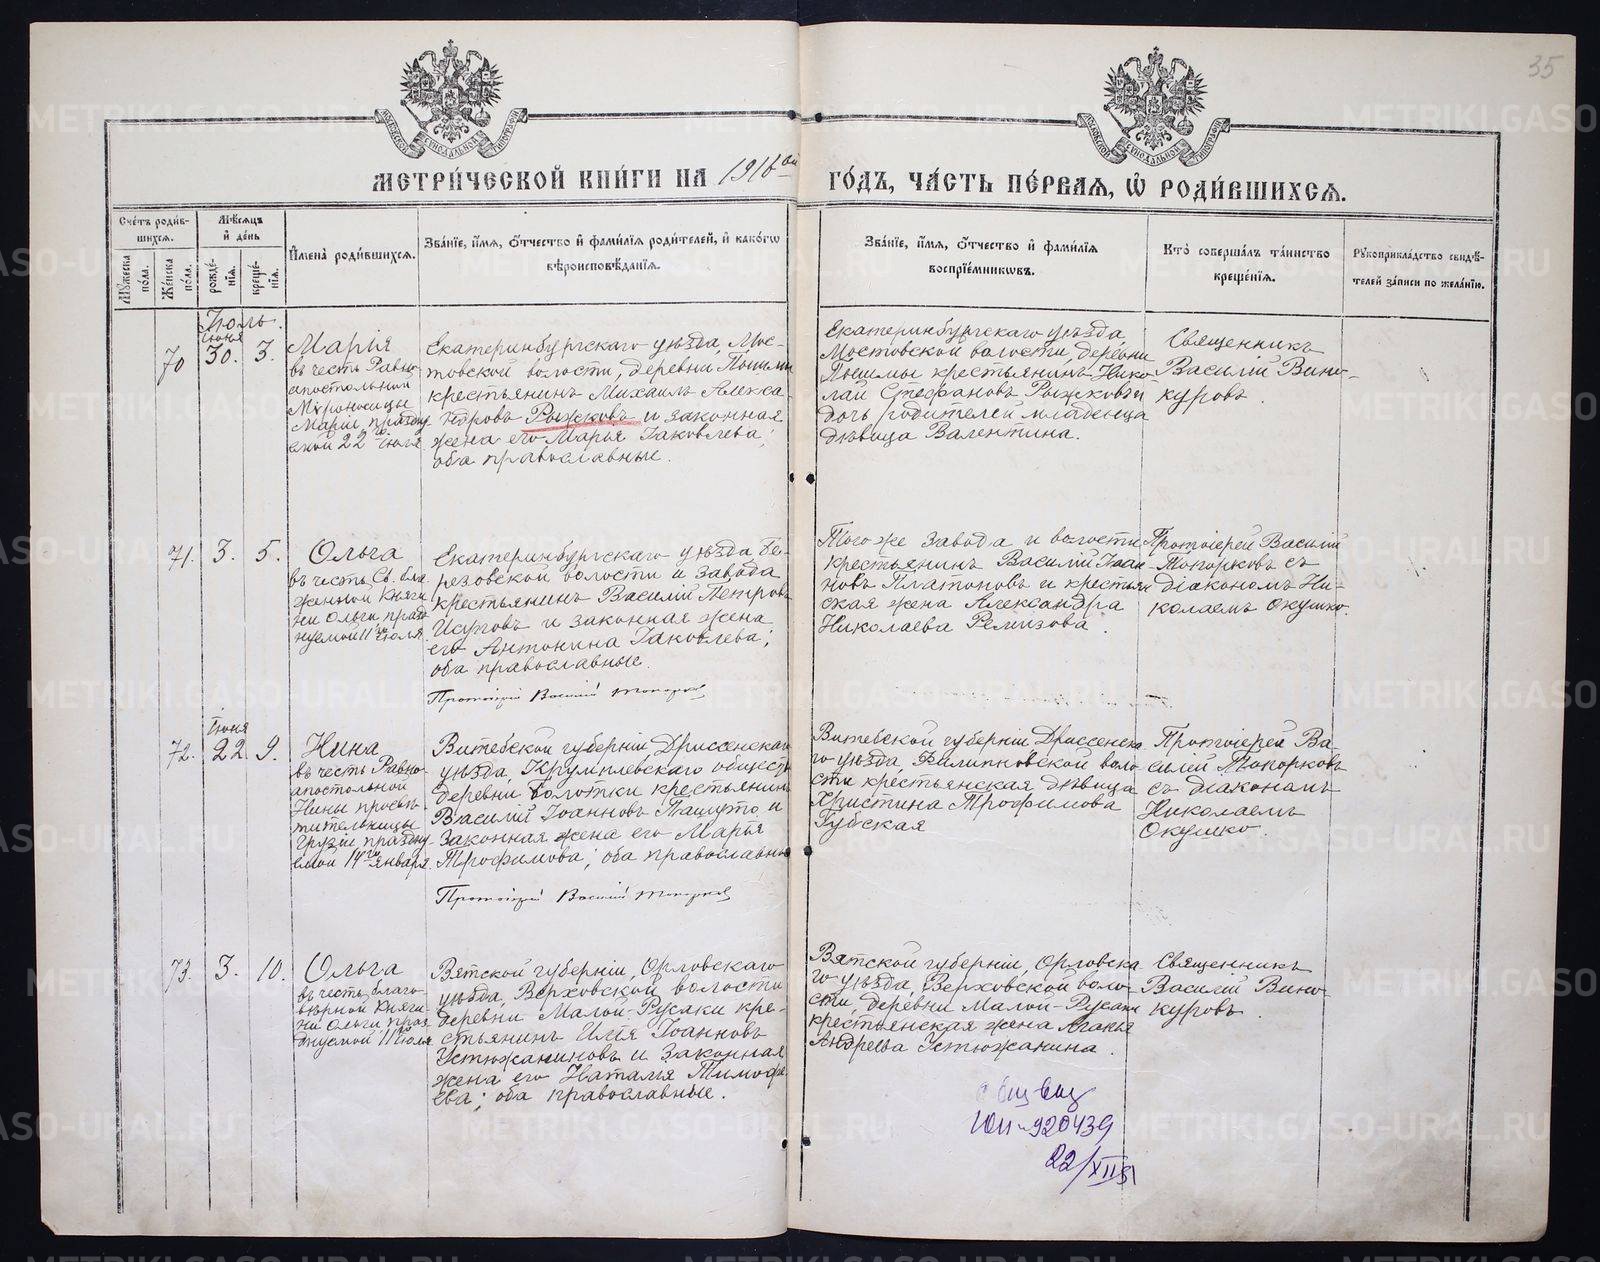 35
МОСКОВСКОЙ СѴНОДАЛЬНОЙ ТИПОГРАФІИ
МОСКОВСКОЙ СѴНОДАЛЬНОЙ ТИПОГРАФІИ
МЕТРИ́ЧЕСКОЙ КНИ́ГИ НА 1916ой ГО́ДЪ, ЧА́СТЬ ПЕ́РВАѦ, Ѽ РОДИ́ВШИХСѦ.
Сче́тъ роди́в-
шихсѧ.
Мꙋ́жеска по́ла.
Же́нска по́ла.
Мѣ́сѧцъ
и҆ де́нь
рожде́-
нїѧ.
креще́-
нїѧ.
И҆мена̀ роди́вшихсѧ.
Зва́нїе, и҆́мѧ, ѻ҆́тчество и҆ фами́лїѧ роди́телей, и҆ како́гѡ
вѣроисповѣ́данїѧ.
Зва́нїе, и҆́мѧ, ѻ҆́тчество и҆ фами́лїѧ
воспрїе́мникѡвъ.
Кто̀ соверша́лъ та́инство
креще́нїѧ.
Рꙋкоприкла́дство свидѣ́-
телей за́писи по жела́нїю.
Іюль.
Іюня
70 30. 3.
Марія
въ честь Равно-
апостольной
Мѵроносицы
Маріи, праздну
емой 22го Іюля
Екатеринбургскаго уѣзда, Мос-
товской волости, деревни Пышмы
крестьянинъ Михаилъ Алекса-
ндровъ Рыжковъ и законная
жена его Марья Іаковлева;
оба православные.
Екатеринбургскаго уѣзда,
Мостовской волости, деревни
Пышмы крестьянинъ Нико-
лай Стефановъ Рыжковъ и
дочь родителей младенца
дѣвица Валентина.
Священникъ
Василій Вино-
куровъ.
71. 3. 5.
Ольга
въ честь Св. бла
женной Княги
ни Ольги, празд
нуемой 11го Іюля.
Екатеринбургскаго уѣзда Бе-
резовской волости и завода
крестьянинъ Василій Петровъ
Исуповъ и законная жена
его Антонина Іаковлева;
оба православные.
Протоіерей Василій Топорковъ
Того же завода и волости
крестьянинъ Василій Іоан
новъ Платоновъ и крестьян
ская жена Александра
Николаева Ремизова.
Протоіерей Василій
Топорковъ съ
діакономъ Ни-
колаемъ Окушко.
Іюня
72. 22 9.
Нина
въ честь Равно-
апостольной
Нины просвѣ-
тительницы
Грузіи, праздну-
емой 14го Января
Витебской губерніи, Дриссенскаго
уѣзда, Крумплевскаго обществ
деревни Болотки крестьянинъ
Василій Іоанновъ Пашуто и
законная жена его Марья
Трофимова; оба православны
Протоіерей Василій Топорковъ
Витебской губерніи Дриссенска
го уѣзда, Филиповской воло
сти крестьянская дѣвица
Христина Трофимова
Губская
Протоіерей Ва-
силій Топорковъ
съ діакономъ
Николаемъ
Окушко.
73. 3. 10.
Ольга
въ честь благо-
вѣрной Княги-
ни Ольги, праз
днуемой 11го Іюля
Вятской губерніи, Орловскаго
уѣзда, Верховской волости
деревни Малой-Русаки кре-
стьянинъ Илія Іоанновъ
Устюжаниновъ и законная
жена его Наталья Тимофе
ева; оба православные.
Вятской губерніи, Орловска
го уѣзда, Верховской воло-
сти, деревни Малой-Русаки
крестьянская жена Агафья
Андреева Устюжанина.
Священникъ
Василій Вино-
куровъ.
920439
22/XII 51
METRIKI.GASO-URAL.RU